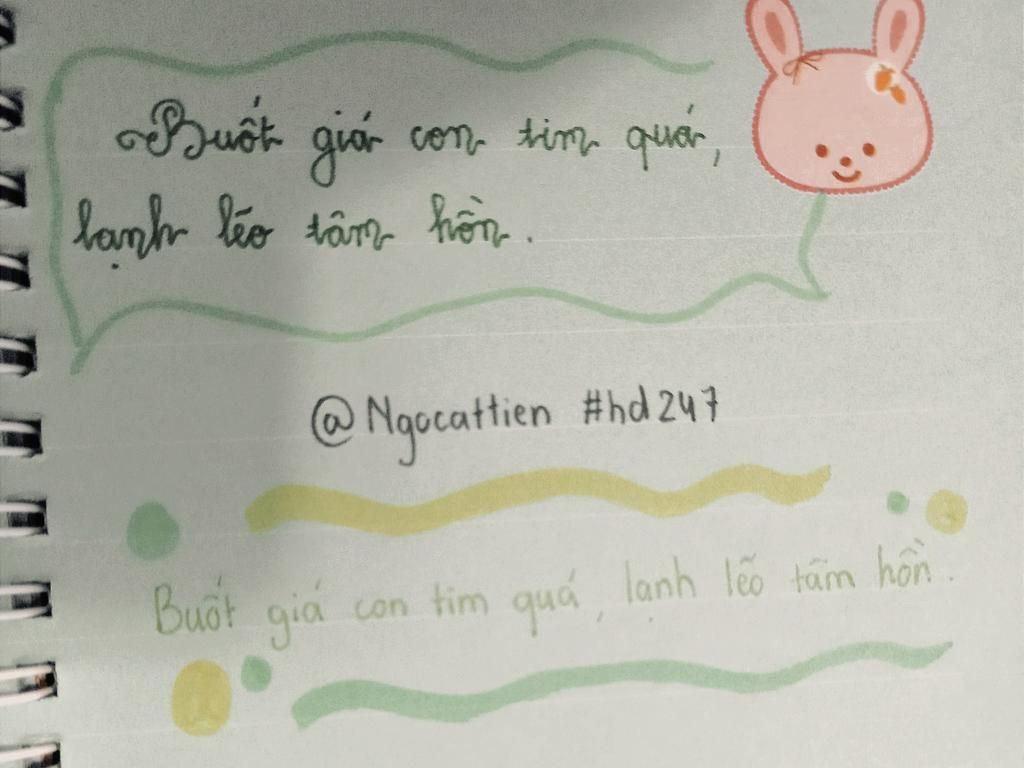 Buốt giá con tim quá,
lạnh lẽo tâm hồn.
@Ngocattien #hd247
Buốt giá con tim quá, lạnh lẽo tâm hồn.